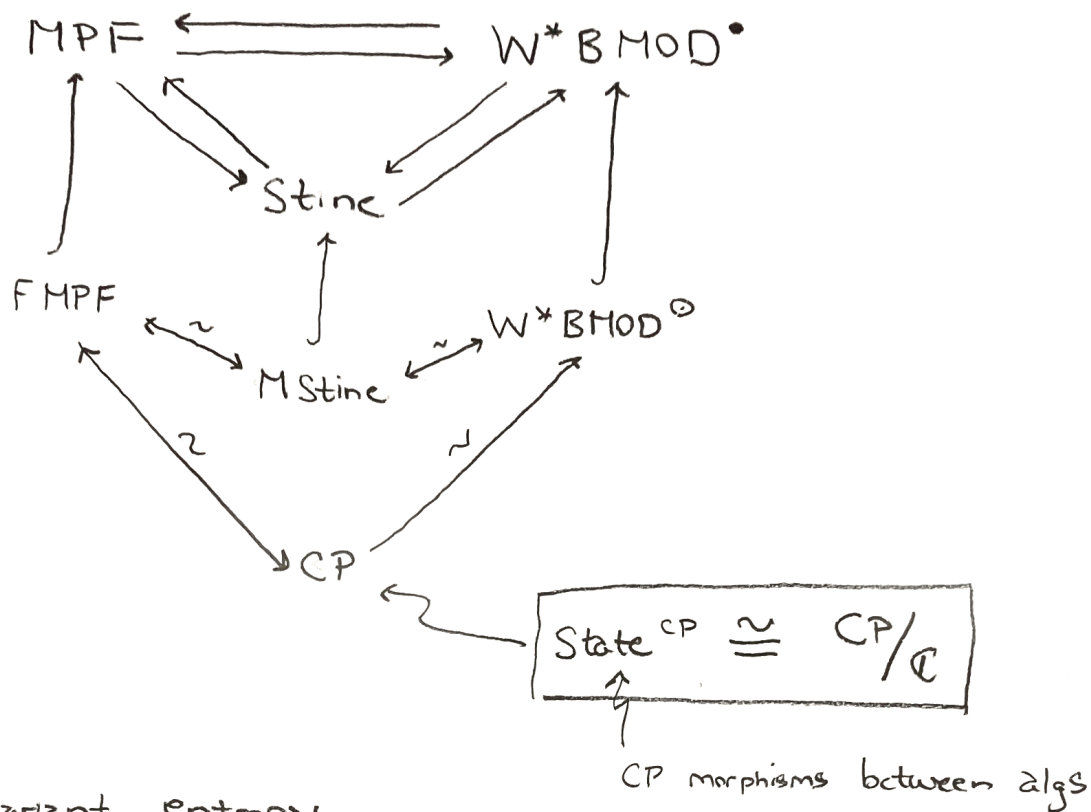 MPF W*BMOD•
Stine
FMPF W*BMOD⊙
~ ~
MStine
~ ~
CP
State^CP ≅ CP/ℂ
CP morphisms between algs
entropy